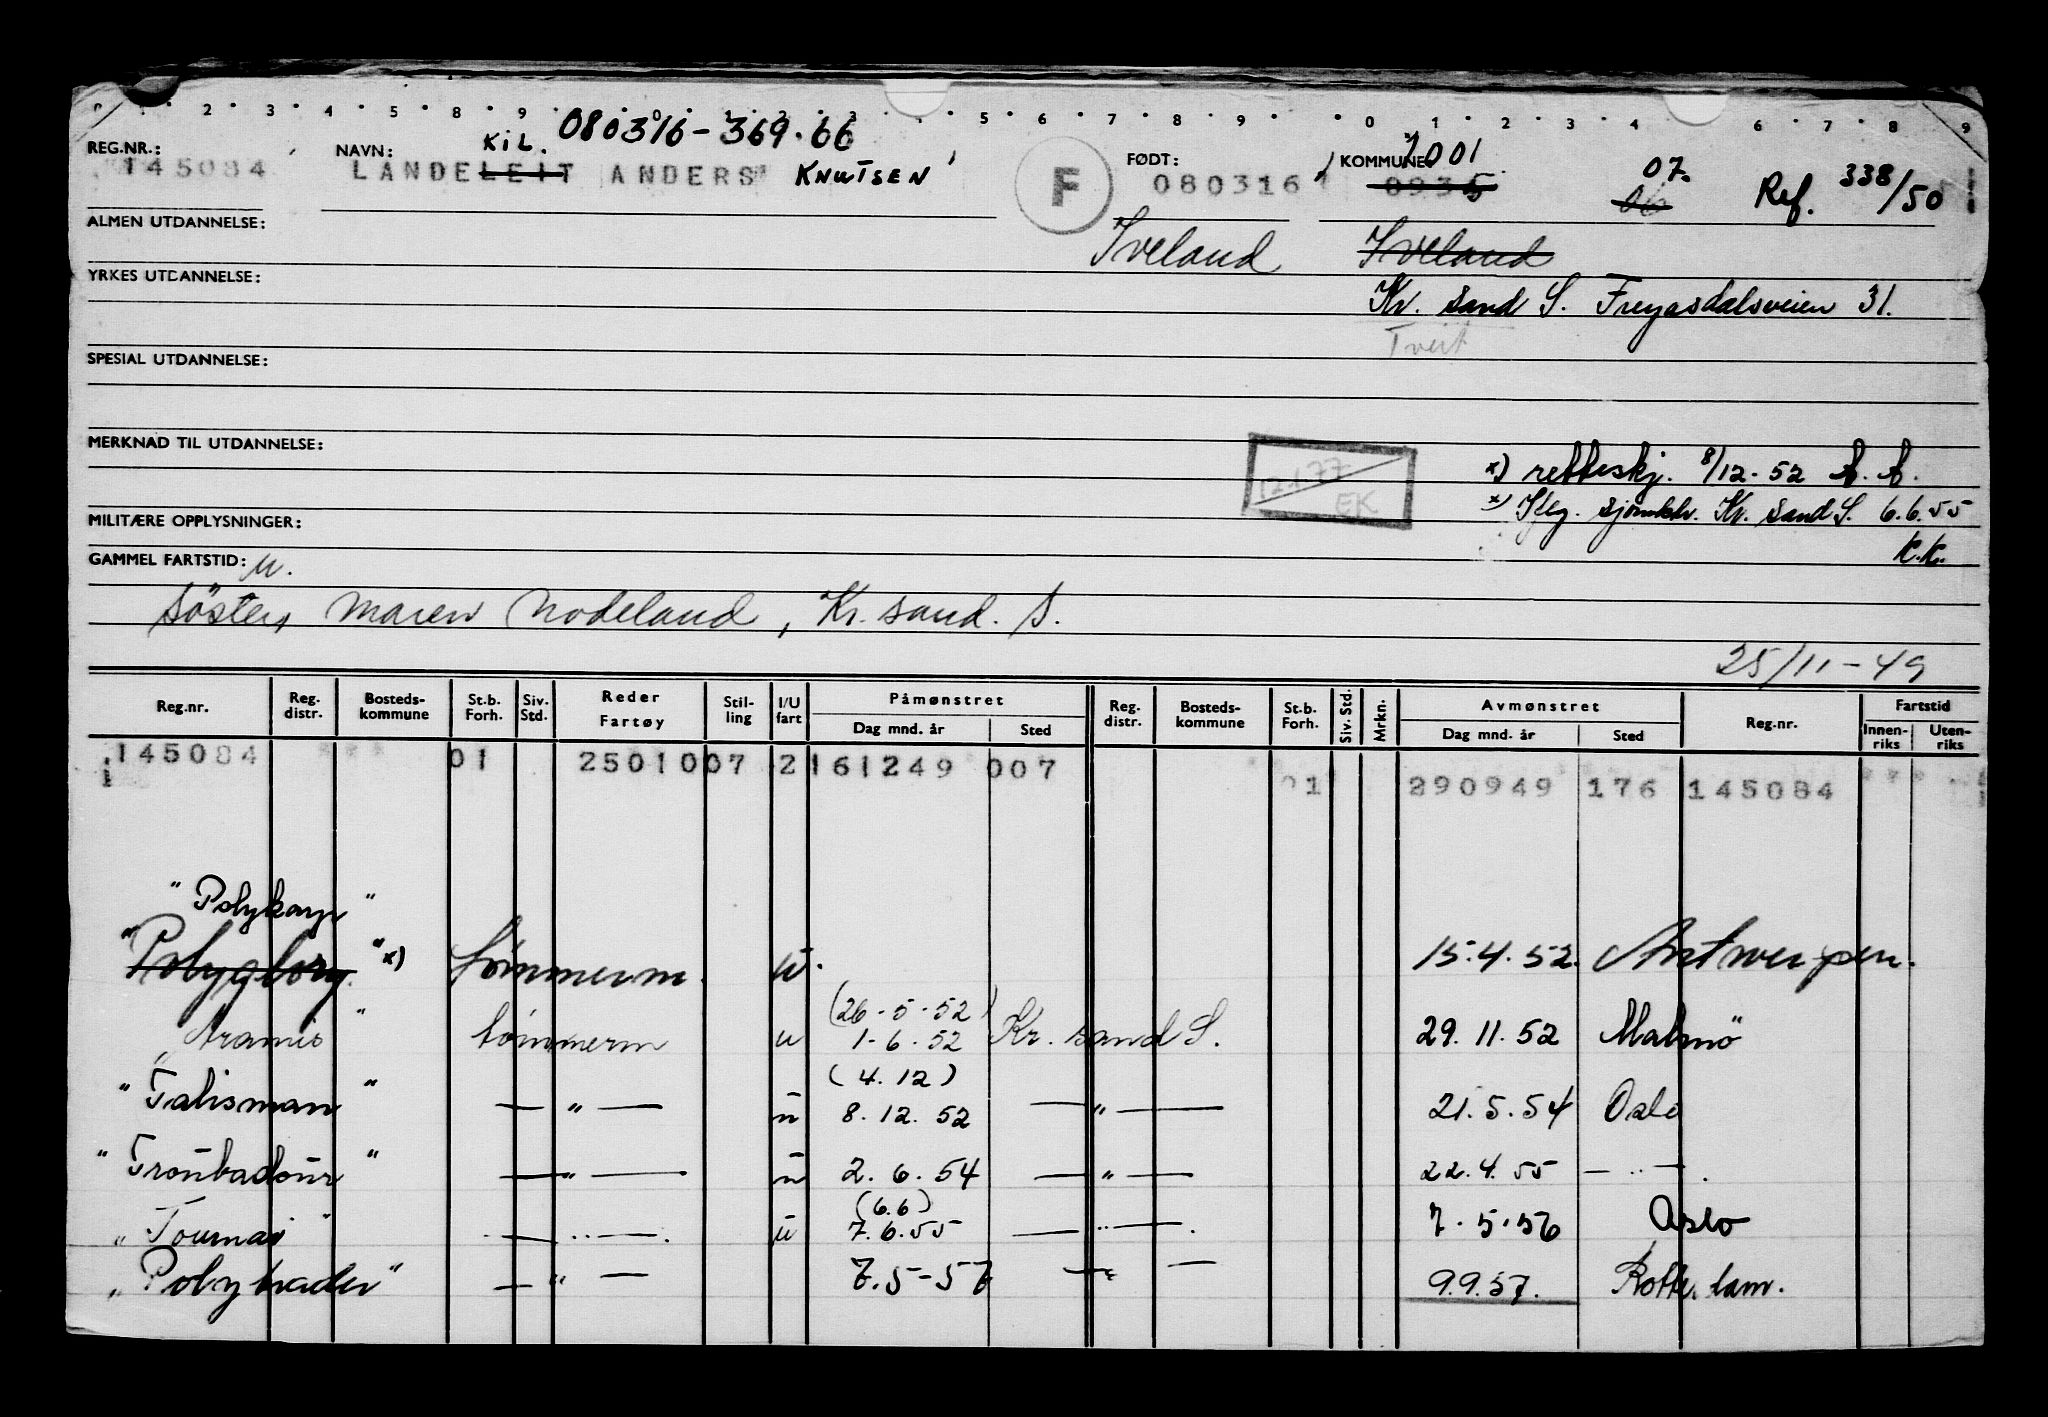 1 2 3 4 5 8 9 5 6 7 8 9 0 1 2 3 4 6 7 8 9
KIL. 080316-369.66 1001
REG.NR.: NAVN: FØDT: KOMMUNE: 07. Ref. 338/50
145084 LANDELEIT ANDERS KNUTSEN F 080316 0935 06
ALMEN UTDANNELSE: Iveland Iveland
YRKES UTDANNELSE: Kr. sand S. Freyasdalsveien 31.
Tveit
SPESIAL UTDANNELSE:
MERKNAD TIL UTDANNELSE:
12.1.77 EK x) retteskj. 8/12-52
x) Kr. sand S. 6.6.55
MILITÆRE OPPLYSNINGER:
K.K.
GAMMEL FARTSTID: U.
søster, Maren Nodeland, Kr. sand. S.
25/11-49
Reg.nr. Reg. distr. Bosteds-kommune St.b. Forh. Siv. Std. Reder Fartøy Stil-ling I/U fart Påmønstret Dag mnd. år Sted Reg. distr. Bosteds-kommune St.b. Forh. Siv. Std. Mrkn. Avmønstret Dag mnd. år Sted Reg.nr. Fartstid Innen-riks Uten-riks
145084 01 2501007 2 161249 007 01 290949 176 145084
"Polykarp"
"Polyglory" x) tømmerm. u. 15.4.52. Antwerpen.
(26-5-52)
"Aramis" tømmerm u 1-6.52 Kr. sand S. 29.11.52 Malmö
(4.12)
"Talisman" — " — u 8.12.52 — " — 21.5.54 Oslo
"Troubadour" — " — u 2.6.54 — " — 22.4.55 — " —.
(6.6)
"Tournai" — " —. u 7.6.55 — " —. 7.5.56 Oslo
"Polytrader" — " — 7.5-57 — " — 9.9.57.